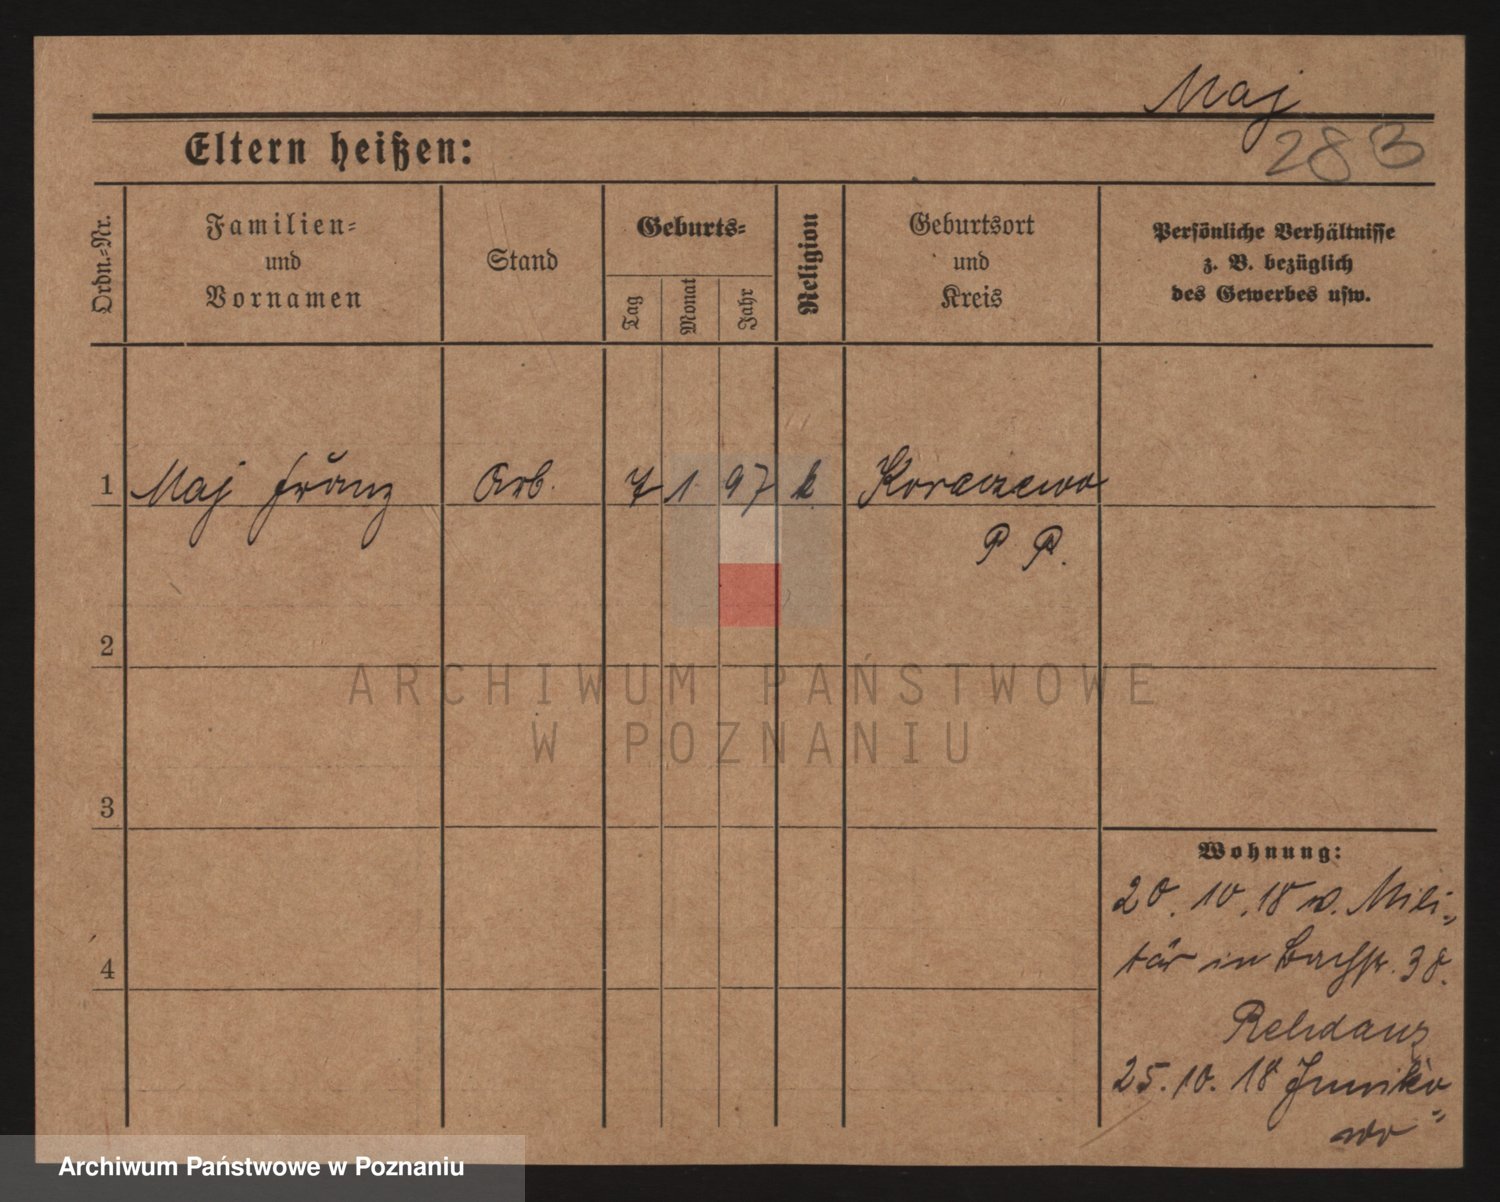 Maj
28 B
Eltern heißen:
Ordn.-Nr.
Familien-
und
Vornamen
Stand
Geburts-
Tag
Monat
Jahr
Religion
Geburtsort
und
Kreis
Persönliche Verhältnisse
z. B. bezüglich
des Gewerbes usw.
1 Maj Franz Arb. 7 1 97 k. Koraczewo
P P.
2
3
4
Wohnung:
20. 10. 18 v. Mili-
tär in 38.
Rehdanz
25. 10. 18 Juniko-
wo
ARCHIWUM PAŃSTWOWE
W POZNANIU
Archiwum Państwowe w Poznaniu